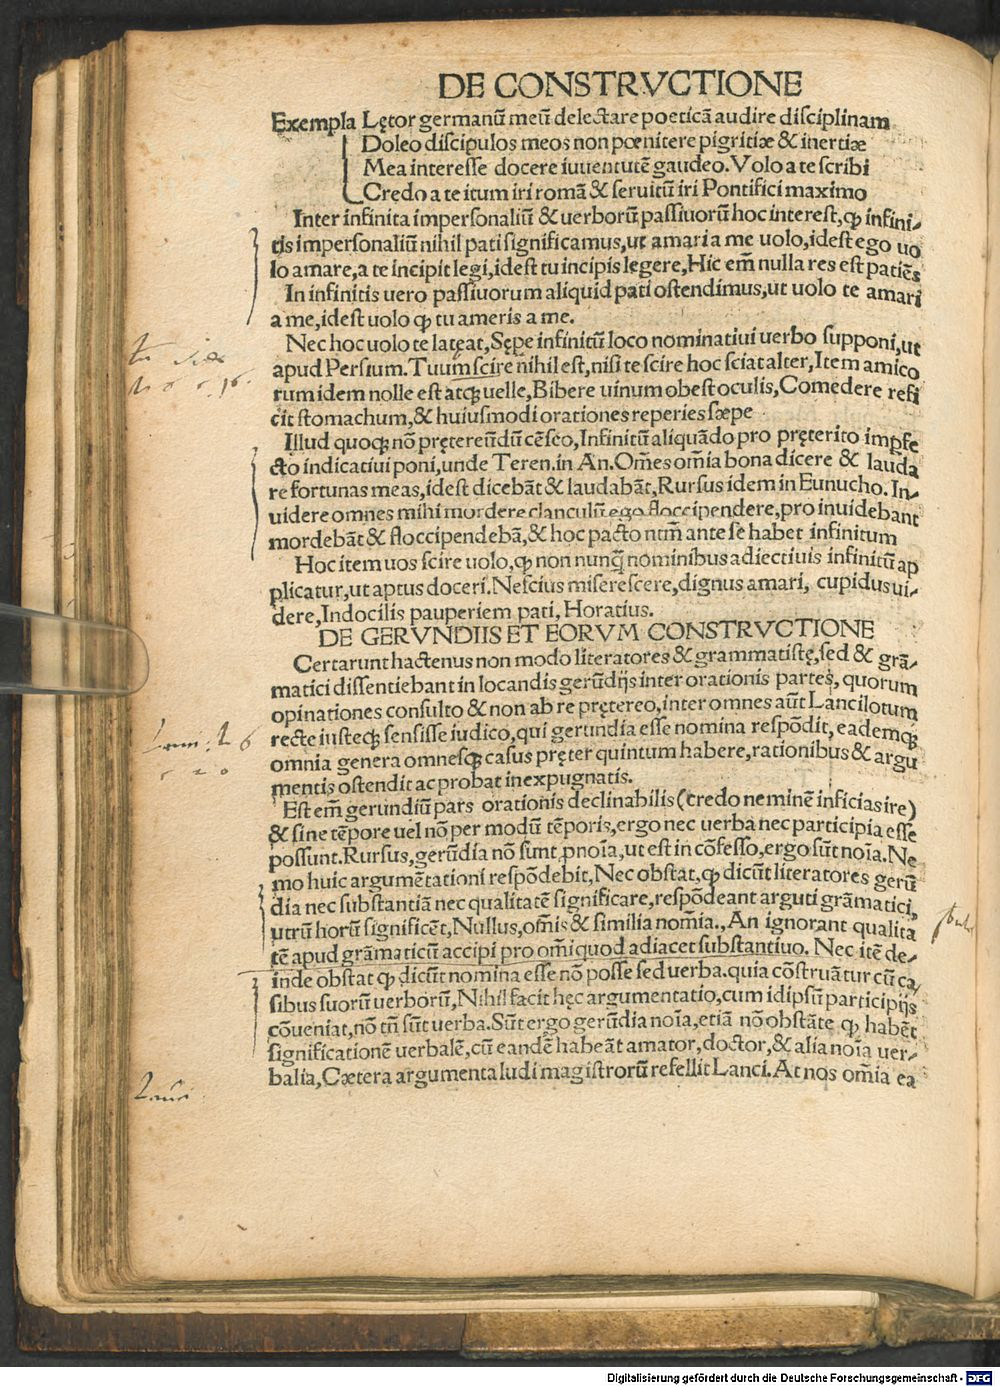 DE CONSTRVCTIONE
Exempla Lętor germanū meū delectare poeticā audire disciplinam
Doleo discipulos meos non pœnitere pigritiæ & inertiæ
Mea interesse docere iuuentutē gaudeo. Volo a te scribi
Credo a te itum iri romā & seruitū iri Pontifici maximo
Inter infinita impersonaliū & uerborū passiuorū hoc interest, ꝙ infini-
tis impersonaliū nihil pati significamus, ut amari a me uolo, idest ego uo
lo amare, a te incipit legi, idest tu incipis legere, Hic em̄ nulla res est patiēs
In infinitis uero passiuorum aliquid pati ostendimus, ut uolo te amari
a me, idest uolo ꝙ tu ameris a me.
Nec hoc uolo te lateat, Sępe infinitū loco nominatiui uerbo supponi, ut
apud Persium. Tuum scire nihil est, nisi te scire hoc sciat alter, Item amico
rum idem nolle est atqꝫ uelle, Bibere uinum obest oculis, Comedere refi
cit stomachum, & huiusmodi orationes reperies sæpe
Illud quoqꝫ nō pręter eūdū cēseo, Infinitū aliquādo pro pręterito impfe
cto indicatiui poni, unde Teren. in An. Om̄es om̄ia bona dicere & lauda
re fortunas meas, idest dicebāt & laudabāt, Rursus idem in Eunucho. In-
uidere omnes mihi mordere clanculū ego floccipendere, pro inuidebant
mordebāt & floccipendebā, & hoc pacto ntm̄ ante se habet infinitum
Hoc item uos scire uolo, ꝙ non nunq̄ nominibus adiectiuis infinitū ap
plicatur, ut aptus doceri. Nescius miserescere, dignus amari, cupidus ui-
dere, Indocilis pauperiem pati, Horatius.
DE GERVNDIIS ET EORVM CONSTRVCTIONE
Certarunt hactenus non modo literatores & grammatistę, sed & grā-
matici dissentiebant in locandis gerūdijs inter orationis partes, quorum
opinationes consulto & non ab re pręter eo, inter omnes aūt Lancilotum
recte iusteqꝫ sensisse iudico, qui gerundia esse nomina respōdit, eademqꝫ
omnia genera omnesqꝫ casus pręter quintum habere, rationibus & argu
mentis ostendit ac probat inexpugnatis.
Est em̄ gerundiū pars orationis declinabilis (credo neminē inficias ire)
& sine tēpore uel nō per modū tēporis, ergo nec uerba nec participia esse
possunt. Rursus, gerūdia nō sunt pnoīa, ut est in cōfesso, ergo sūt noīa. Ne
mo huic argumētationi respōdebit, Nec obstat, ꝙ dicūt literatores gerū
dia nec substantiā nec qualitatē significare, respōdeant arguti grāmatici,
utrū horū significēt, Nullus, om̄is & similia nom̄ia., An ignorant qualita
tē apud grāmaticū accipi pro om̄i quod adiacet substantiuo. Nec itē de-
inde obstat ꝙ dicūt nomina esse nō posse sed uerba. quia cōstruātur cū ca,
sibus suorū uerborū, Nihil facit hęc argumentatio, cum idipsū participijs
cōueniat, nō tn̄ sūt uerba. Sūt ergo gerūdia noīa, etiā nō obstāte ꝙ habēt
significationē uerbalē, cū eandē habeāt amator, doctor, & alia noīa uer-
balia, Cætera argumenta ludi magistrorū refellit Lanci. At nos om̄ia ea
Digitalisierung gefördert durch die Deutsche Forschungsgemeinschaft - DFG